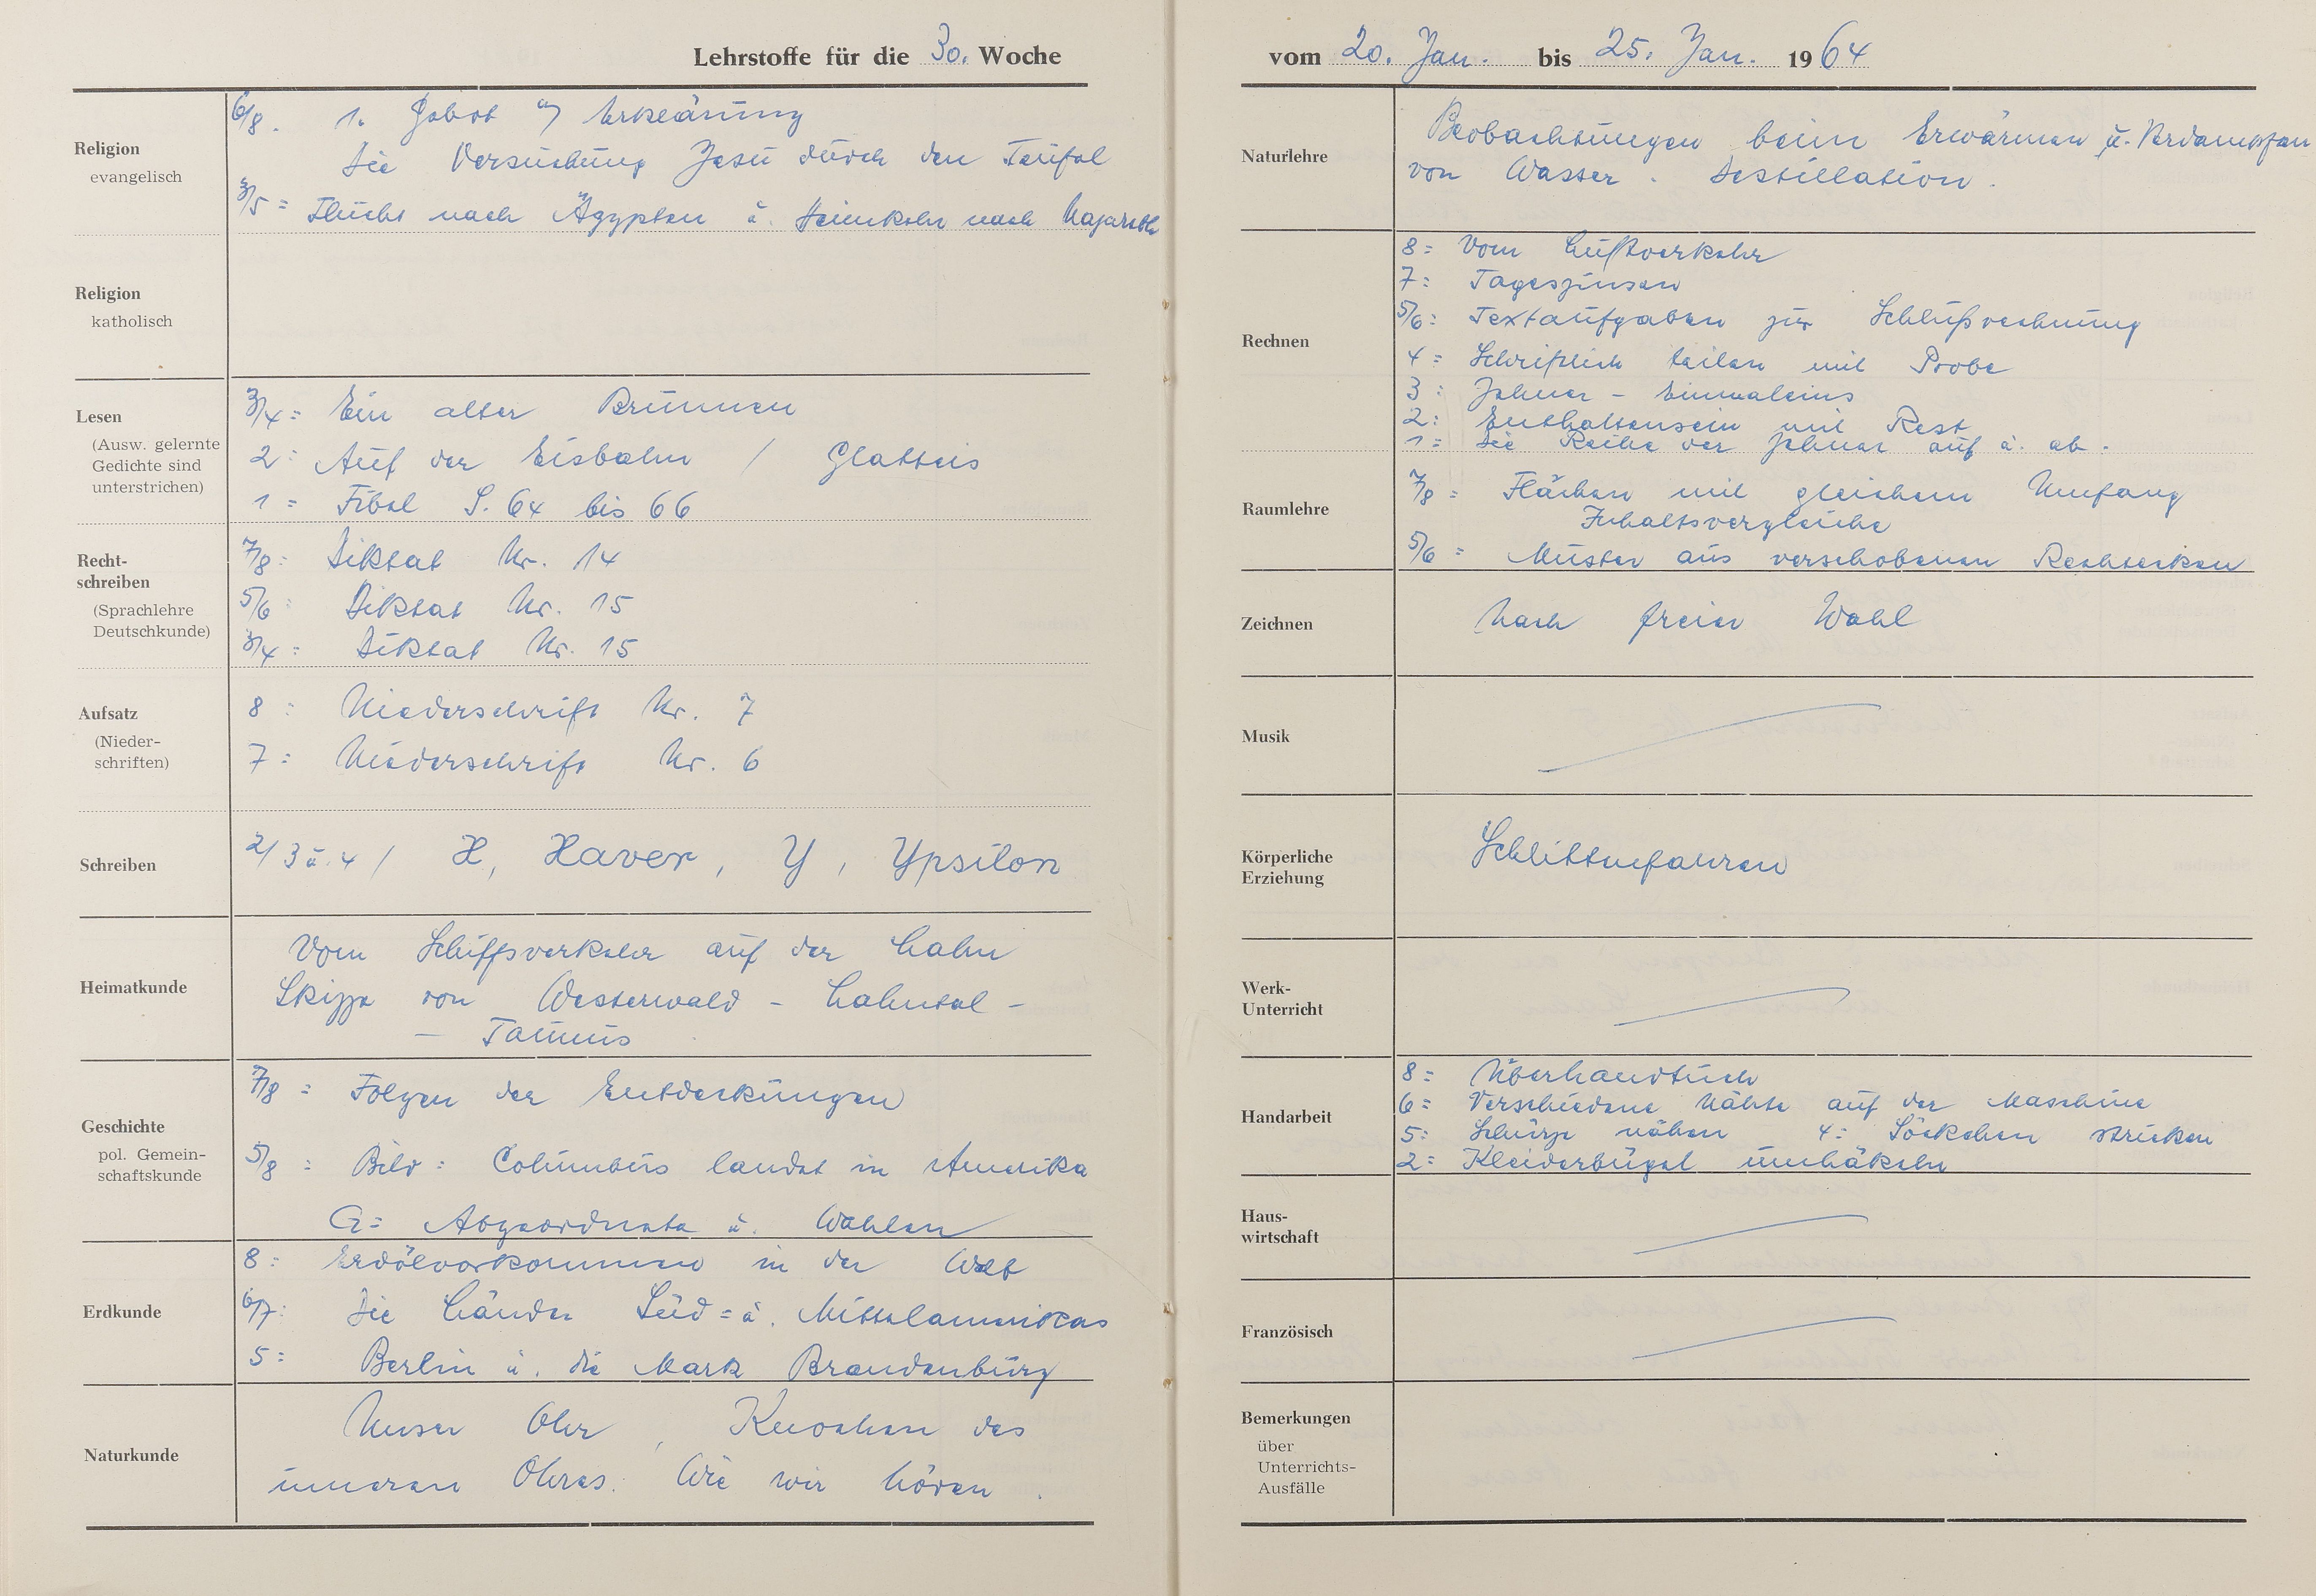 Lehrstoffe für die 30. Woche
Religion
evangelisch
6/8. 1. Gebot u. Erklärung
Die Versuchung Jesu durch den Teufel
3/5 = Flucht nach Ägypten u. Heimkehr nach Nazareth
Religion
katholisch
Lesen
(Ausw. gelernte
Gedichte sind
unterstrichen)
3/4 = Ein alter Brunnen
2: Auf der Eisbahn / Glatteis
1 = Fibel S. 64 bis 66
Recht-
schreiben
(Sprachlehre
Deutschkunde)
7/8: Diktat Nr. 14
5/6: Diktat Nr. 15
3/4 = Diktat Nr. 15
Aufsatz
(Nieder-
schriften)
8: Niederschrift Nr. 7
7= Niederschrift Nr. 6
Schreiben
2/3 u. 4 / X, Xaver, Y, Ypsilon
Heimatkunde
Vom Schiffsverkehr auf der Lahn
Skizze von Westerwald - Lahntal -
- Taunus
Geschichte
pol. Gemein-
schaftskunde
7/8 = Folgen der Entdeckungen
5/8: Bild: Columbus landet in Amerika
G= Abgeordnete u. Wahlen
Erdkunde
8: Erdölvorkommen in der Welt
6/7: Die Länder Süd= u. Mittelamerikas
5= Berlin u. die Mark Brandenburg
Naturkunde
Unser Ohr, Knochen des
inneren Ohres. Wie wir hören.
vom 20. Jan. bis 25. Jan. 1964
Naturlehre
Beobachtungen beim Erwärmen u. Verdampfen
von Wasser. Destillation.
Rechnen
8= Vom Luftverkehr
7= Tageszinsen
5/6: Textaufgaben zur Schlußrechnung
4= Schriftlich teilen mit Probe
3: Zehner - Einmaleins
2: Enthaltensein mit Rest
1= Die Reihe der Zehner auf u. ab.
Raumlehre
7/8 = Flächen mit gleichem Umfang
Inhaltsvergleiche
5/6 = Muster aus verschobenen Rechtecken
Zeichnen
Nach freier Wahl
Musik
Körperliche
Erziehung
Schlittenfahren
Werk-
Unterricht
Handarbeit
8= Überhandtuch
6= Verschiedene Nähte auf der Maschine
5: Schürze nähen 4: Söckchen stricken
2= Kleiderbügel umhäkeln
Haus-
wirtschaft
Französisch
Bemerkungen
über
Unterrichts-
Ausfälle